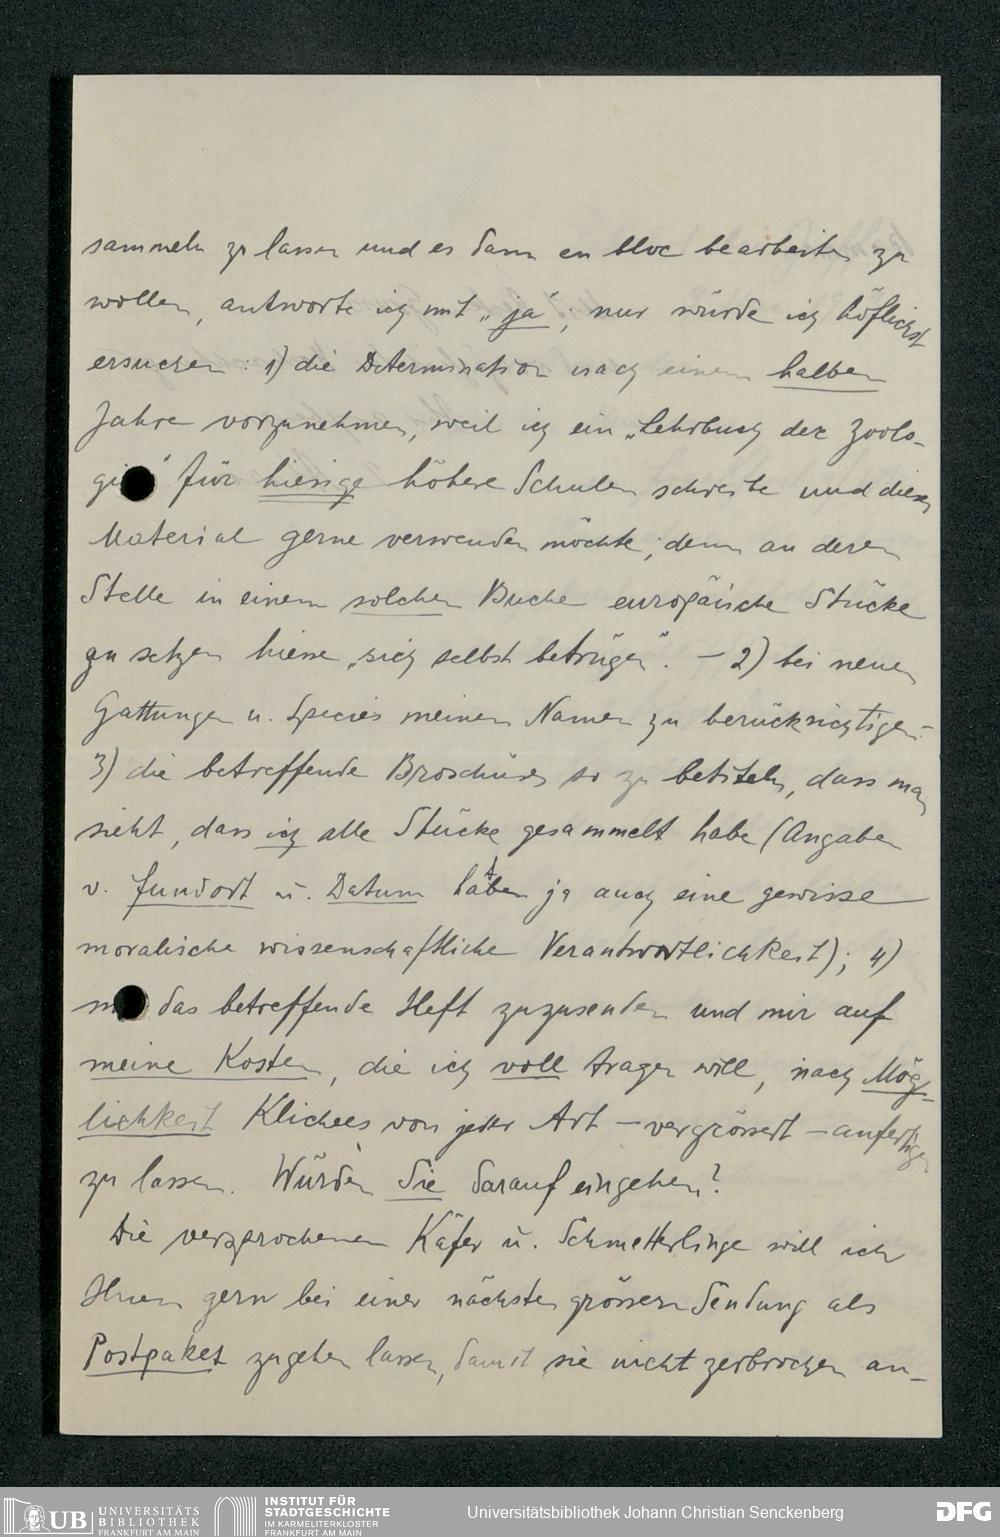 sammeln zu lassen und es dann en bloc bearbeiten zu
wollen, antworte ich mit „ja“; nur würde ich höflichst
ersuchen: 1) die Determination nach einem halben
Jahre vorzunehmen, weil ich ein „Lehrbuch der Zoolo-
gie“ für hiesige höhere Schulen schreibe und dieses
Material gerne verwenden möchte; denn an deren
Stelle in einem solchen Buche europäische Stücke
zu setzen hiesse „sich selbst betrügen“. – 2) bei neuen
Gattungen u. Species meinen Namen zu berücksichtigen. –
3) die betreffende Broschüre so zu betiteln, dass man
sieht, dass ich alle Stücke gesammelt habe (Angaben
v. Fundort u. Datum haben ja auch eine gewisse
moralische wissenschaftliche Verantwortlichkeit); 4)
mir das betreffende Heft zuzusenden und mir auf
meine Kosten, die ich voll tragen will, nach Mög-
lichkeit Klichees von jeder Art – vergrössert – anfertigen
zu lassen. Würden Sie darauf eingehen?
Die versprochenen Käfer u. Schmetterlinge will ich
Ihnen gern bei einer nächsten grössern Sendung als
Postpaket zugehen lassen, damit sie nicht zerbrochen an-
UB UNIVERSITÄTS
BIBLIOTHEK
FRANKFURT AM MAIN
INSTITUT FÜR
STADTGESCHICHTE
IM KARMELITERKLOSTER
FRANKFURT AM MAIN
Universitätsbibliothek Johann Christian Senckenberg
DFG